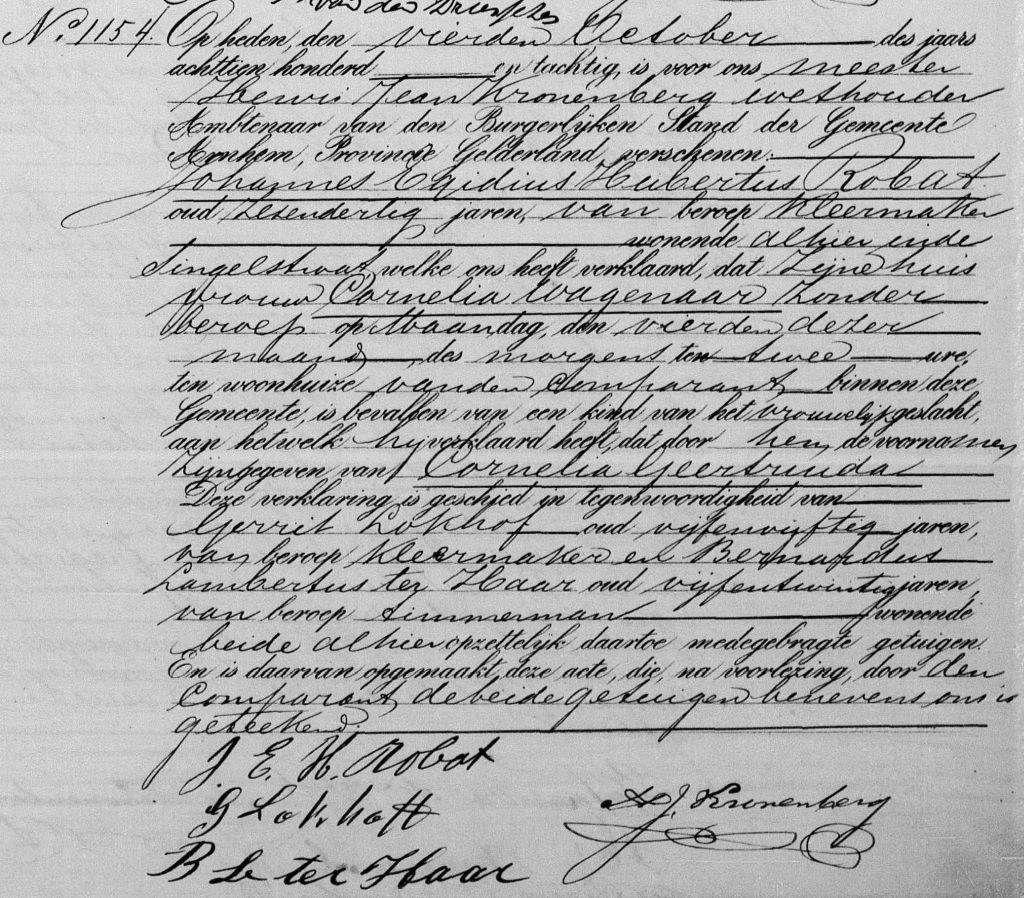 van den
No. 1154. Op heden, den vierden October des jaars
achttien honderd en tachtig, is voor ons meester
Jean Kronenberg wethouder
Ambtenaar van den Burgerlijken Stand der Gemeente
Arnhem, Provincie Gelderland, verschenen:
Johannes Egidius Hubertus Robat
oud zesendertig jaren, van beroep kleermaker
wonende alhier inde
Singelstraat, welke ons heeft verklaard, dat zijne huis
vrouw Cornelia Wagenaar zonder
beroep op Maandag, den vierden dezer
maand, des morgens ten twee ure,
ten woonhuize vanden Comparant binnen deze
Gemeente, is bevallen van een kind van het vrouwelijk geslacht,
aan hetwelk hij verklaard heeft, dat door hem de voornamen
zijn gegeven van Cornelia Geertruida
Deze verklaring is geschied in tegenwoordigheid van
Gerrit Lokhof oud vijfenvijftig jaren,
van beroep kleermaker en Bernardus
Lambertus ter Haar oud vijfentwintig jaren,
van beroep timmerman wonende
beide alhier opzettelijk daartoe medegebragte getuigen.
En is daarvan opgemaakt deze acte, die, na voorlezing, door den
Comparant, de beide getuigen benevens ons is
geteekend.
J. E. H. Robat
G Lokhoff
Kronenberg
B L ter Haar